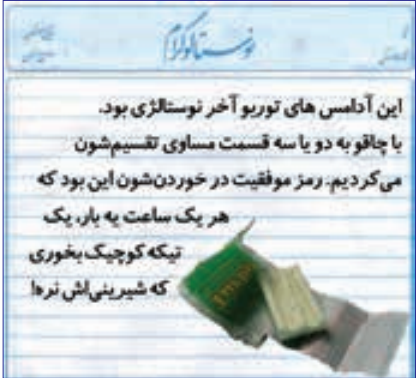 نوستالوگرام
این آدامس های توربو آخر نوستالژی بود.
با چاقو به دو یا سه قسمت مساوی تقسیم‌شون
می‌کردیم. رمز موفقیت در خوردن‌شون این بود که
هر یک ساعت یه بار، یک
تیکه کوچیک بخوری
که شیرینی‌اش نره!